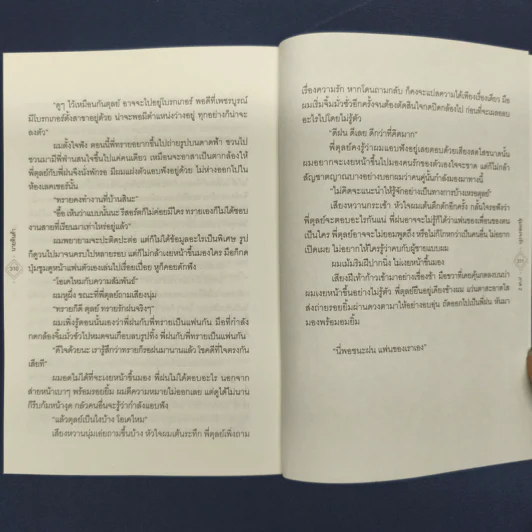 "ดูๆ ไว้เหมือนกันดุลย์ อาจจะไปอยู่โบรกเกอร์ พอดีที่เพชรบูรณ์
มีโบรกเกอร์ตั้งสาขาอยู่ด้วย น่าจะพอมีตำแหน่งว่างอยู่ ทุกอย่างก็น่าจะ
ลงตัว"
ผมตั้งใจฟัง ตอนนี้พี่ทรายอยากขึ้นไปถ่ายรูปบนดาดฟ้า ชวนไป
ชวนมามีพี่ท่านสนใจขึ้นไปแค่คนเดียว เหมือนจะอาสาเป็นตากล้องให้
พี่ดุลย์กับพี่ฝนจึงนั่งพักรอ มีผมแฝงตัวแอบฟังอยู่ด้วย ไม่ห่างออกไปใน
ห้องเลคเชอร์นั้น
"ทรายคงทำงานที่บ้านสินะ"
"อื้อ เห็นว่าแบบนั้นนะ รีสอร์ตก็ไม่ค่อยมีใคร ทรายเองก็ไม่ได้ชอบ
งานสายที่เรียนมาเท่าไหร่อยู่แล้ว"
ผมพยายามจะปะติดปะต่อ แต่ก็ไม่ได้ข้อมูลอะไรเป็นพิเศษ รูป
ก็ดูวนไปมาจนครบไปหลายรอบ แต่ก็ไม่กล้าเงยหน้าขึ้นมองใคร มือก็กด
ปุ่มซูมดูหน้าแฟนตัวเองเล่นไปเรื่อยเปื่อย หูก็คอยดักฟัง
"โอเคไหมกับความสัมพันธ์"
ผมหูผึ่ง ขณะที่พี่ดุลย์ถามเสียงนุ่ม
"ทรายก็ดี ดุลย์ ทรายรักฝนจริงๆ"
ผมเพิ่งรู้ตอนนั้นเองว่าพี่ฝนกับพี่ทรายเป็นแฟนกัน มือที่กำลัง
กดกล้องจิ้มมั่วซั่วไปหมดจนเกือบลบรูปทิ้ง พี่ฝนกับพี่ทรายเป็นแฟนกัน
"ดีใจด้วยนะ เรารู้สึกว่าทรายก็รอฝนมานานแล้ว โชคดีที่ใจตรงกัน
เสียที"
ผมอดไม่ได้ที่จะเงยหน้าขึ้นมอง พี่ฝนไม่ได้ตอบอะไร นอกจาก
ส่ายหน้าเบาๆ พร้อมรอยยิ้ม ผมตีความหมายไม่ออกเลย แต่ดูได้ไม่นาน
ก็รีบก้มหน้างุด กลัวคนอื่นจะรู้ว่ากำลังแอบฟัง
"แล้วดุลย์เป็นไงบ้าง โอเคไหม"
เสียงหวานนุ่มเอ่ยถามขึ้นบ้าง หัวใจผมเต้นระทึก พี่ดุลย์เพิ่งถาม
เรื่องความรัก หากโดนถามกลับ ก็คงจะแปลความได้เพียงเรื่องเดียว มือ
ผมเริ่มจิ้มมั่วซั่วอีกครั้งจนต้องตัดสินใจกดปิดกล้องไป ก่อนที่จะเผลอลบ
อะไรไปโดยไม่รู้ตัว
"ดีฝน ดีเลย ดีกว่าที่คิดมาก"
พี่ดุลย์คงรู้ว่าผมแอบฟังอยู่เลยตอบด้วยเสียงสดใสขนาดนั้น
ผมอยากจะเงยหน้าขึ้นไปมองคนรักของตัวเองใจจะขาด แต่ก็ไม่กล้า
สัญชาตญาณบางอย่างบอกผมว่าคนคู่นั้นกำลังมองมาทางนี้
"ไม่คิดจะแนะนำให้รู้จักอย่างเป็นทางการบ้างเหรอดุลย์"
เสียงหวานกระเซ้า หัวใจผมเต้นตึกตักอีกครั้ง กลั้นใจรอฟังว่า
พี่ดุลย์จะตอบอะไรกันแน่ พี่ฝนอาจจะไม่รู้ก็ได้ว่าแฟนของเพื่อนของตน
เป็นใคร พี่ดุลย์อาจจะไม่ยอมพูดถึง หรือไม่ก็โกหกว่าเป็นคนอื่น ไม่อยาก
เปิดเผย ไม่อยากให้ใครรู้ว่าคบกับผู้ชายแบบผม
ผมเม้มริมฝีปากนิ่ง ไม่เงยหน้าขึ้นมอง
เสียงฝีเท้าก้าวเข้ามาอย่างเรื่องช้า มือขวาที่เคยคุ้นกดลงบนบ่า
ผมเงยหน้าขึ้นอย่างไม่รู้ตัว พี่ดุลย์ยืนอยู่เคียงข้างผม แว่นตาสะอาดใส
ส่งถ่ายรอยยิ้มผ่านดวงตามาให้อย่างอบอุ่น ถัดออกไปเป็นพี่ฝน หันมา
มองพร้อมอมยิ้ม
"นี่พอชนะฝน แฟนของเราเอง"